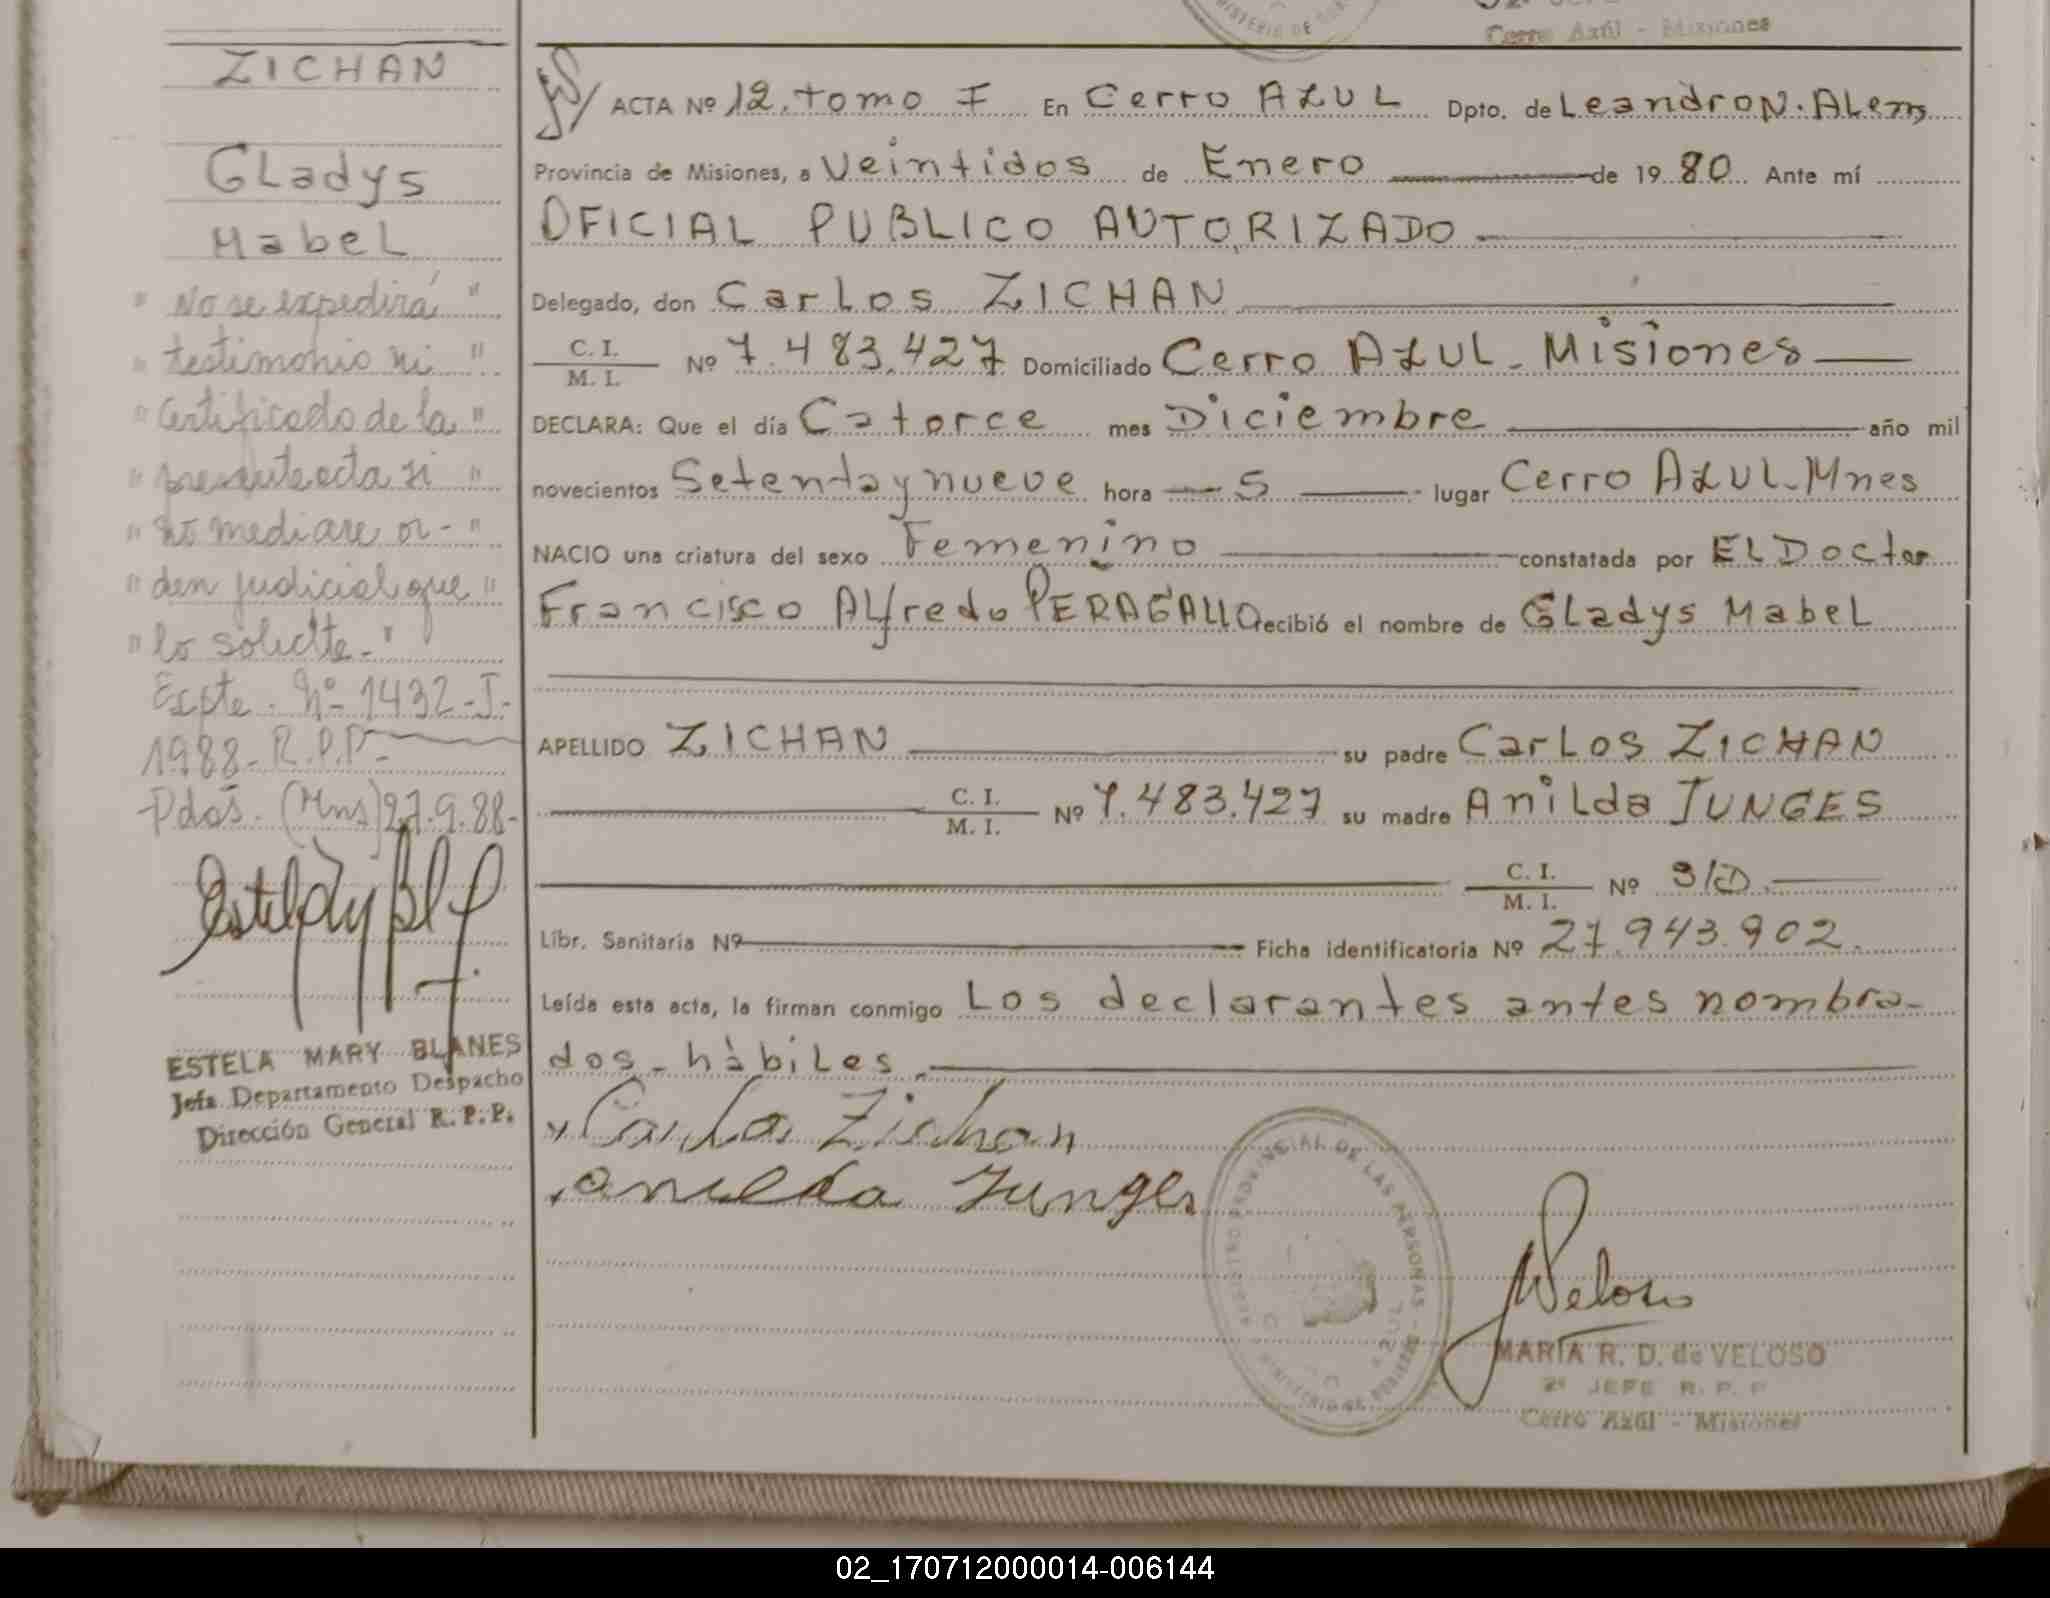 ZICHAN
Gladys
Mabel
" No se expedirá "
" testimonio ni "
" Certificado de la "
" presente acta si "
" no mediare or- "
" den judicial que "
" lo solicite.- "
Expte. Nº 1432-J-
1988- R.P.P.-
Pdas. (Mns) 27.9.88-
ESTELA MARY BLANES
Jefa Departamento Despacho
Dirección General R. P. P.
MISTERIO DE
Cerro Azúl - Misiones
ACTA Nº 12. tomo I En Cerro AZUL Dpto. de Leandro N. Alem
Provincia de Misiones, a Veintidos de Enero de 19 80 Ante mí
OFICIAL PUBLICO AUTORIZADO
Delegado, don Carlos ZICHAN
C. I.
M. I. Nº 7.483.427 Domiciliado Cerro AZUL - Misiones
DECLARA: Que el día Catorce mes Diciembre año mil
novecientos Setenta y nueve hora 5 lugar Cerro AZUL-Mnes
NACIO una criatura del sexo Femenino constatada por EL Doctor
Francisco Alfredo PERAGALLO recibió el nombre de Gladys Mabel
APELLIDO ZICHAN su padre Carlos ZICHAN
C. I.
M. I. Nº 7.483.427 su madre Anilda JUNGES
C. I.
M. I. Nº S/D
Libr. Sanitaria Nº Ficha identificatoria Nº 27.943.902.
Leída esta acta, la firman conmigo Los declarantes antes nombra-
dos - hàbiles.
x Carlos Zichan
x anilda Junges
REGISTRO PROVINCIAL DE LAS PERSONAS
MINISTERIO DE GOBIERNO
AZUL
Veloso
MARIA R. D. de VELOSO
2º JEFE R. P. P
Cerro Azúl - Misiones
02_170712000014-006144